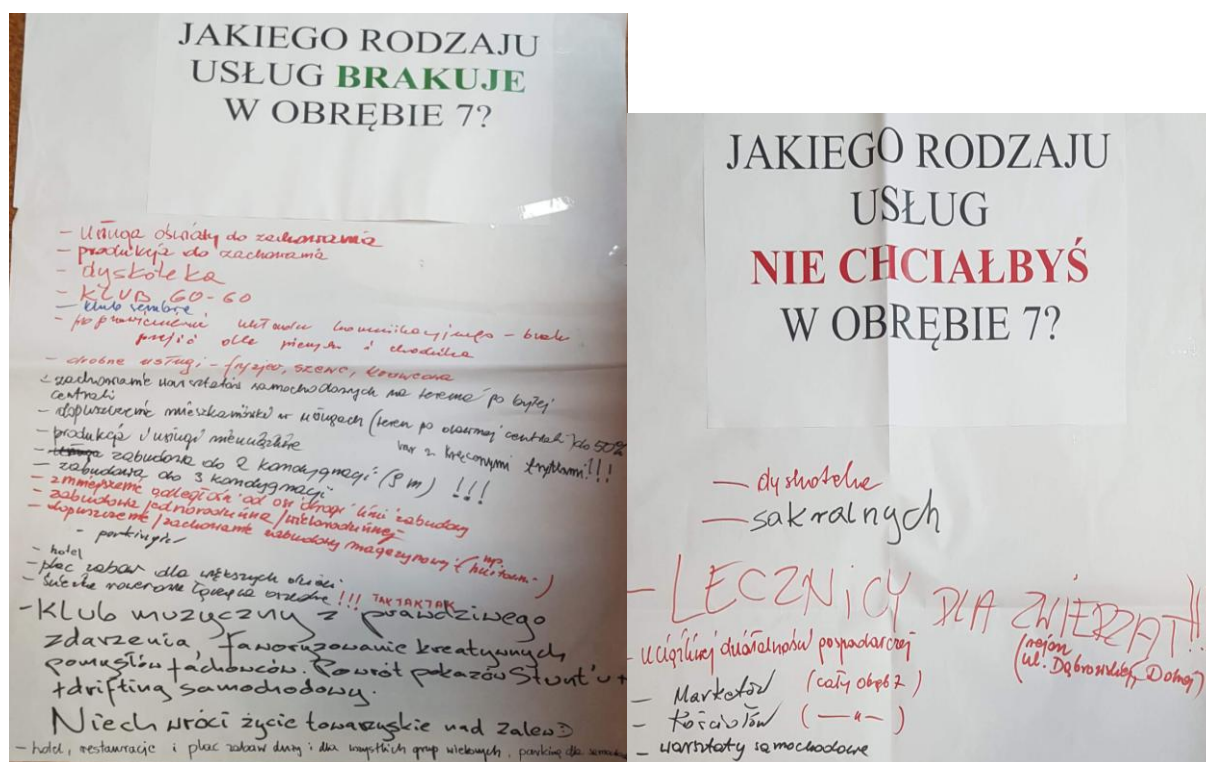 JAKIEGO RODZAJU
USŁUG BRAKUJE
W OBRĘBIE 7?
- usługa oświaty do zachowania
- produkcja do zachowania
- dyskoteka
- KLUB 60-60
- klub seniora
- poprawienie układu komunikacyjnego - brak
przejść dla pieszych i chodnika
- drobne usługi - fryzjer, szewc, krawcowa
- zachowanie warsztatów samochodowych na terenie po byłej
centrali
- dopuszczenie mieszkaniówki w usługach (teren po dawnej centrali) do 50%
- produkcja i usługi nieuciążliwe
bar z kręconymi frytkami!!!
- zabudowa do 2 kondygnacji (9 m) !!!
- zabudowa do 3 kondygnacji
- zmniejszenie odległości od osi drogi linii zabudowy
- zabudowa jednorodzinna/wielorodzinnej
- dopuszczenie/zachowanie zabudowy magazynowej (np.
- parkingi
- hotel
- plac zabaw dla większych dzieci
- ścieżka rowerowa łącząca !!! TAK TAK TAK
- Klub muzyczny z prawdziwego
zdarzenia, faworyzowanie kreatywnych
pomysłów fachowców. Powrót pokazów Stunt'u +
+ drifting samochodowy.
Niech wróci życie towarzyskie nad zalew :)
- hotel, restauracje i plac zabaw duży i dla wszystkich grup wiekowych, parking dla
JAKIEGO RODZAJU
USŁUG
NIE CHCIAŁBYŚ
W OBRĘBIE 7?
- dyskoteka
- sakralnych
- LECZNICY DLA ZWIERZĄT!!
(rejon
ul. Dąbrowskiej, Dolnej)
- uciążliwej działalności gospodarczej
(cały obręb 7)
- Marketów
- Kościołów ( —"— )
- warsztaty samochodowe